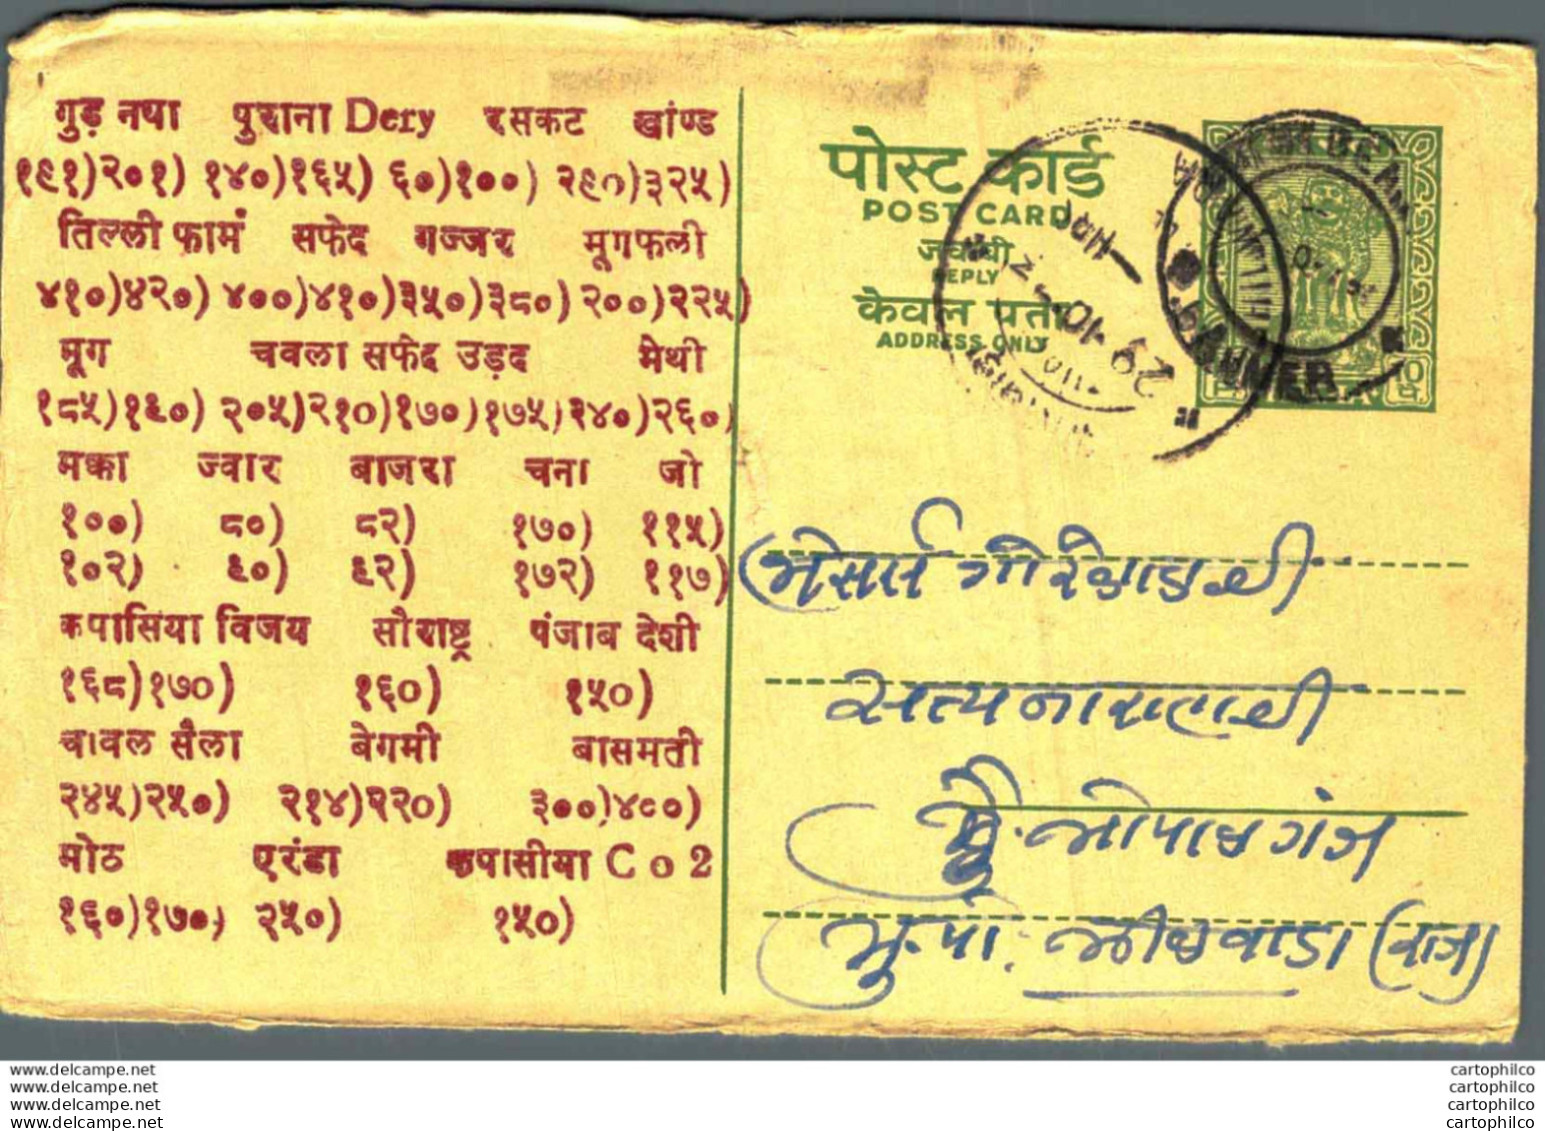 गुड़ नया पुराना Dery रसकट खांण्ड
१९१)२०१) १४०)१६५) ६०)१००) २९०)३२५)
तिल्ली फार्मं सफेद गज्जर मूगफली
४१०)४२०) ४००)४१०)३५०)३८०)२००)२२५)
मूग चवला सफेद उड़द मेथी
१८५)१९०) २०५)२१०)१७०)१७५)२४०)२६०)
मक्का ज्वार बाजरा चना जो
१००) ८०) ८२) १७०) ११५)
१०२) ९०) ९२) १७२) ११७)
कपासिया विजय सौराष्ट्र पंजाब देशी
१६८)१७०) १६०) १५०)
चावल सैला बेगमी बासमती
२४५)२५०) २१४)२२०) ३००)४००)
मोठ एरंडा कपासीया Co2
१६०)१७०) २५०) १५०)
पोस्ट कार्ड
POST CARD
जवाबी
REPLY
केवल पता
ADDRESS ONLY
29 10
मेसर्स गोरेलालजी
सत्यनारायणजी
भोपालगंज
मु.पो. भीलवाड़ा (राज)
delcampe.net
delcampe.net
delcampe.net
delcampe.net
cartophilco
cartophilco
cartophilco
cartophilco